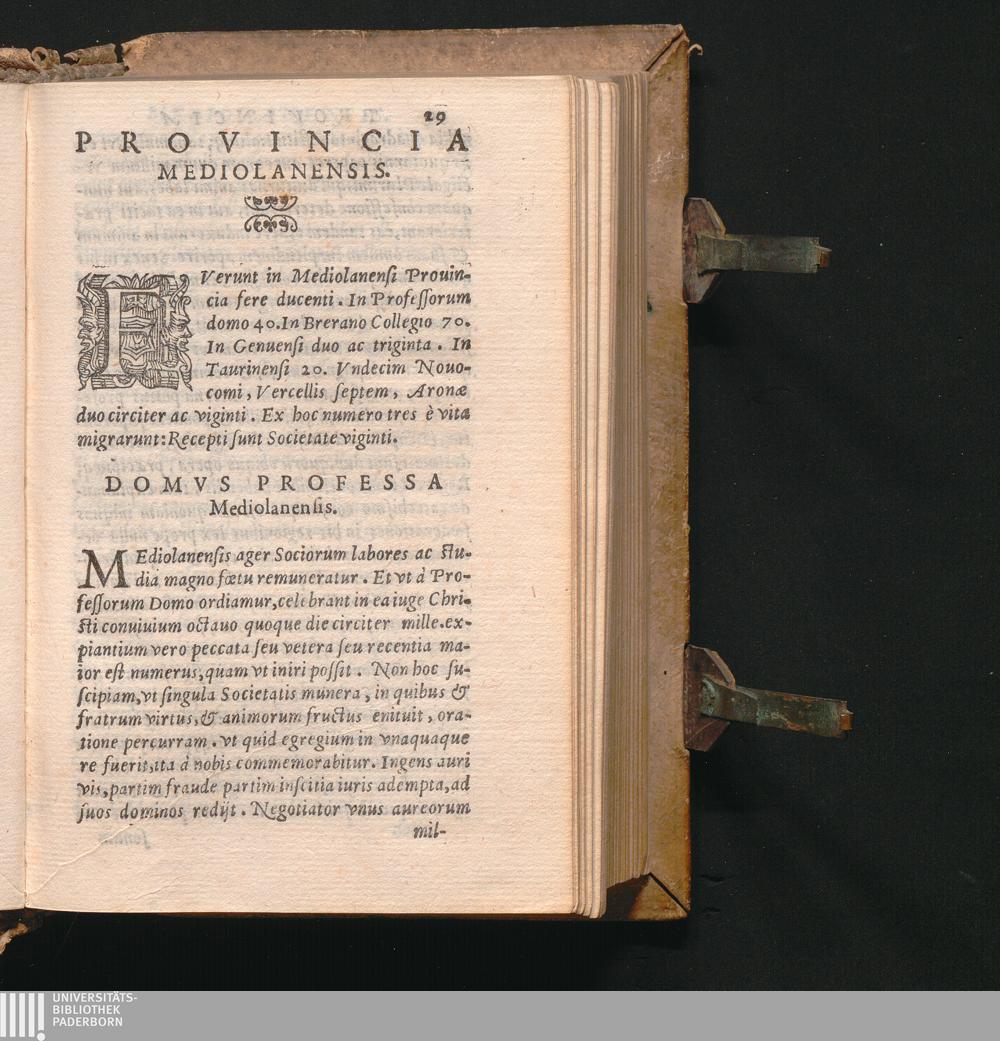 29
PROVINCIA
MEDIOLANENSIS.
FVerunt in Mediolanensi Prouin-
cia fere ducenti. In Professorum
domo 40. In Brerano Collegio 70.
In Genuensi duo ac triginta. In
Taurinensi 20. Vndecim Nouo-
comi, Vercellis septem, Aronæ
duo circiter ac viginti. Ex hoc numero tres è vita
migrarunt: Recepti sunt Societate viginti.
DOMVS PROFESSA
Mediolanensis.
MEdiolanensis ager Sociorum labores ac stu-
dia magno fœtu remuneratur. Et vt à Pro-
fessorum Domo ordiamur, celebrant in ea iuge Chri-
sti conuiuium octauo quoque die circiter mille. ex-
piantium vero peccata seu vetera seu recentia ma-
ior est numerus, quam vt iniri possit. Non hoc su-
scipiam, vt singula Societatis munera, in quibus &
fratrum virtus, & animorum fructus enituit, ora-
tione percurram. vt quid egregium in vnaquaque
re fuerit, ita à nobis commemorabitur. Ingens auri
vis, partim fraude partim inscitia iuris adempta, ad
suos dominos redijt. Negotiator vnus aureorum
mil-
UNIVERSITÄTS-
BIBLIOTHEK
PADERBORN